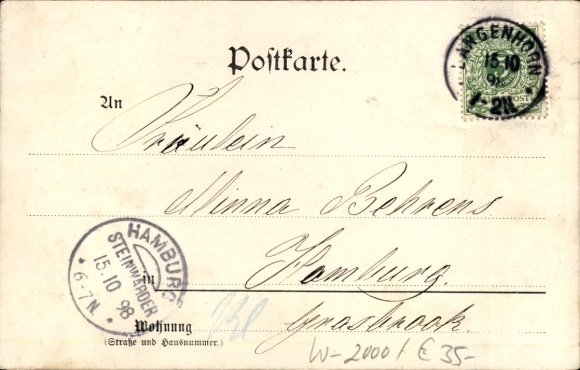 Postkarte.
LANGENHORN
15 10
98
1-2N.
POST
An
Fräulein
Minna Behrens
HAMBURG
STEINWÄRDER
15.10.98
* 6-7N. *
in Hamburg.
Wohnung Grasbrook.
(Straße und Hausnummer.)
W-2000/ €35-